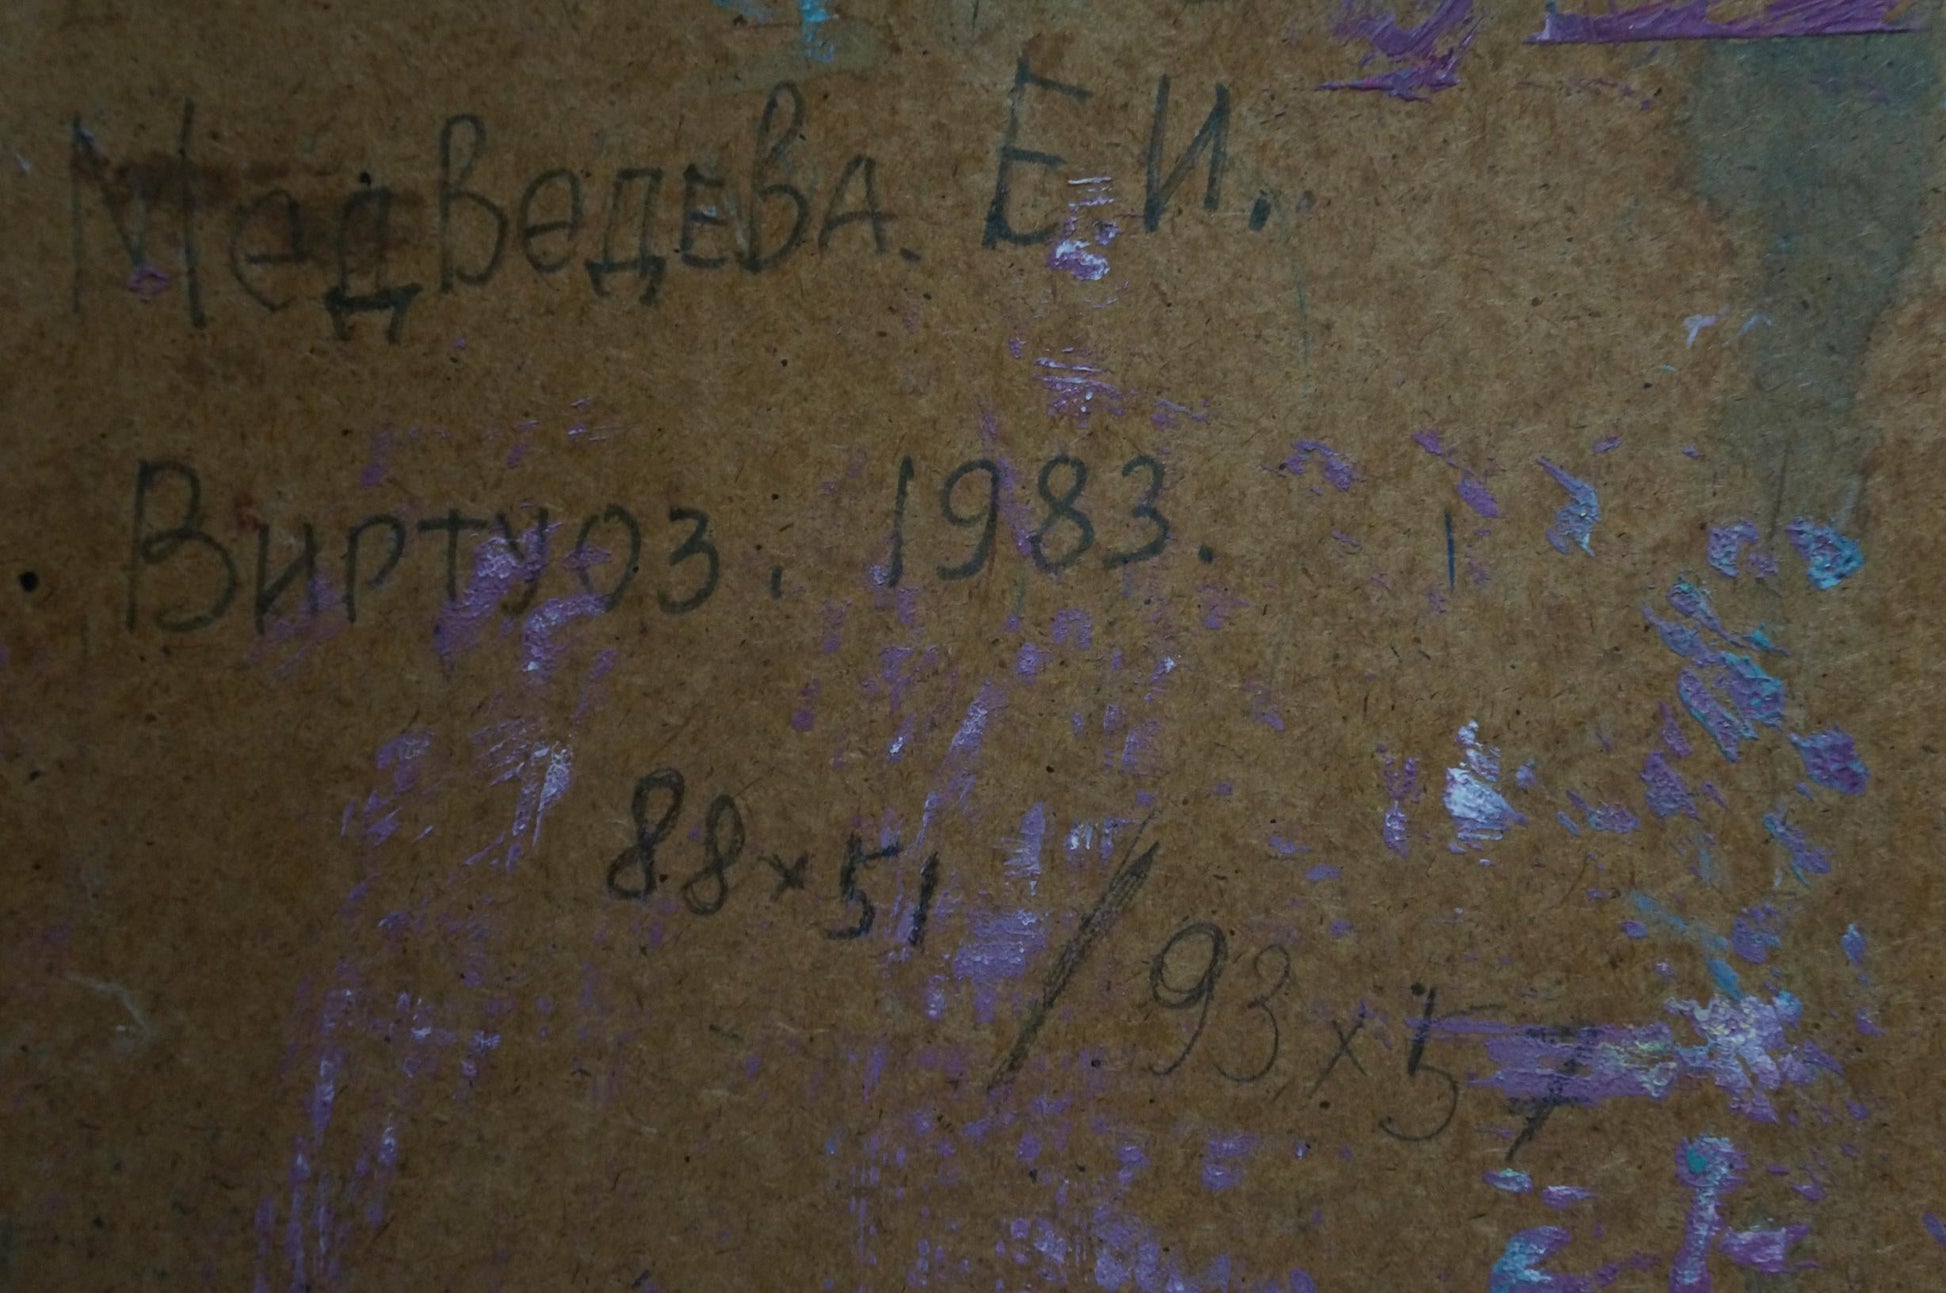 Медведева. Е.И.
Виртуоз. 1983.
88×51 / 93×57